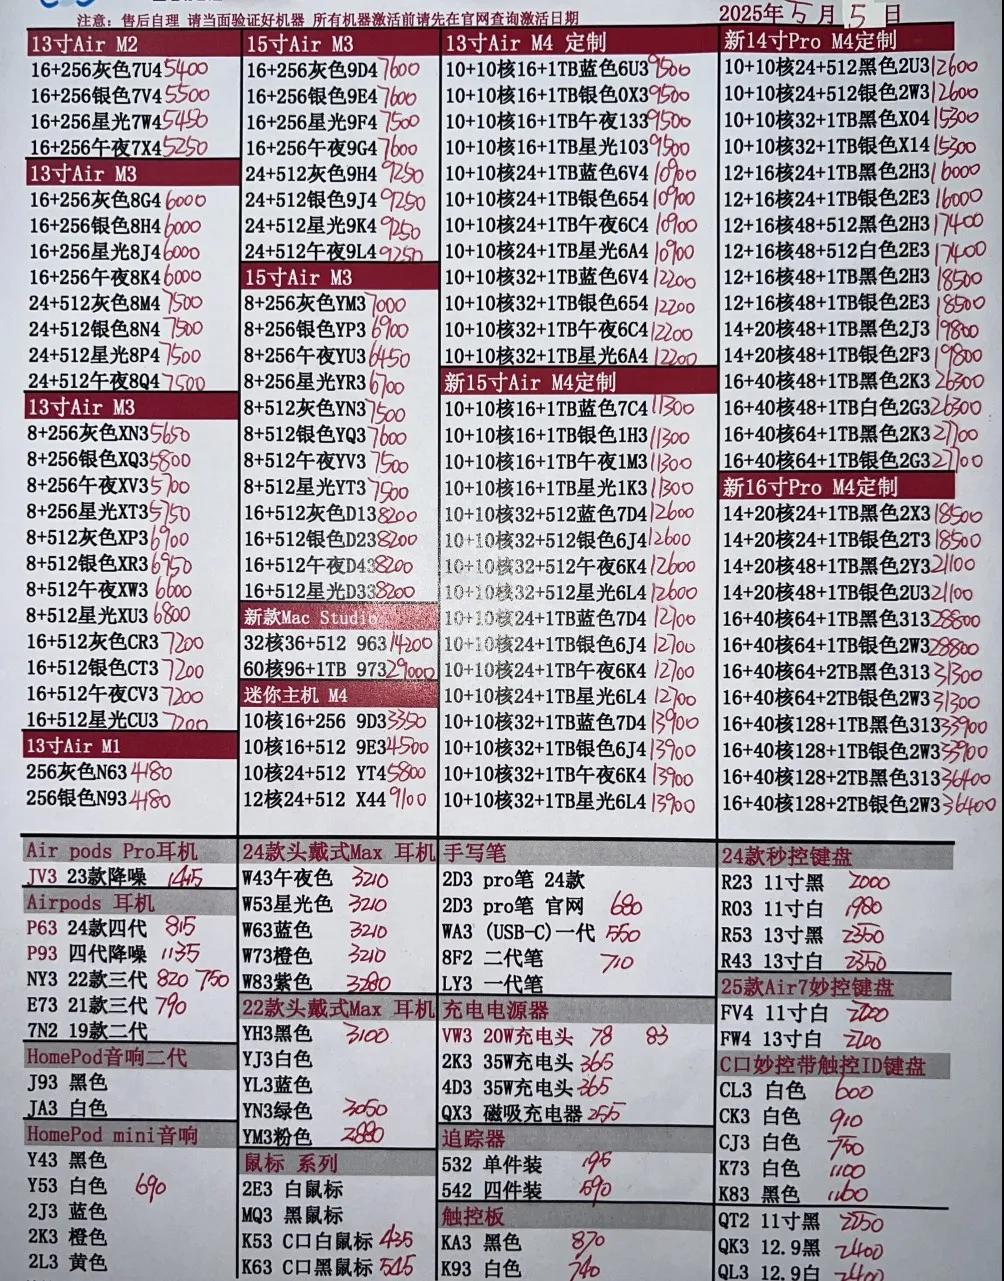 注意：售后自理 请当面验证好机器 所有机器激活前请先在官网查询激活日期
2025年5月5日
13寸Air M2
16+256灰色7U4 5400
16+256银色7V4 5500
16+256星光7W4 5450
16+256午夜7X4 5250
13寸Air M3
16+256灰色8G4 6000
16+256银色8H4 6000
16+256星光8J4 6000
16+256午夜8K4 6000
24+512灰色8M4 7500
24+512银色8N4 7500
24+512星光8P4 7500
24+512午夜8Q4 7500
13寸Air M3
8+256灰色XN3 5650
8+256银色XQ3 5800
8+256午夜XV3 5700
8+256星光XT3 5750
8+512灰色XP3 6900
8+512银色XR3 6950
8+512午夜XW3 6600
8+512星光XU3 6800
16+512灰色CR3 7200
16+512银色CT3 7200
16+512午夜CV3 7200
16+512星光CU3 7200
13寸Air M1
256灰色N63 4180
256银色N93 4180
15寸Air M3
16+256灰色9D4 7600
16+256银色9E4 7600
16+256星光9F4 7500
16+256午夜9G4 7600
24+512灰色9H4 9250
24+512银色9J4 9250
24+512星光9K4 9250
24+512午夜9L4 9250
15寸Air M3
8+256灰色YM3 7000
8+256银色YP3 6900
8+256午夜YU3 6450
8+256星光YR3 6700
8+512灰色YN3 7500
8+512银色YQ3 7600
8+512午夜YV3 7500
8+512星光YT3 7500
16+512灰色D13 8200
16+512银色D23 8200
16+512午夜D43 8200
16+512星光D33 8200
新款Mac Studio
32核36+512 963 14200
60核96+1TB 973 29000
迷你主机 M4
10核16+256 9D3 3350
10核16+512 9E3 4500
10核24+512 YT4 5800
12核24+512 X44 9100
13寸Air M4 定制
10+10核16+1TB蓝色6U3 9500
10+10核16+1TB银色0X3 9500
10+10核16+1TB午夜133 9500
10+10核16+1TB星光103 9500
10+10核24+1TB蓝色6V4 10900
10+10核24+1TB银色654 10900
10+10核24+1TB午夜6C4 10900
10+10核24+1TB星光6A4 10900
10+10核32+1TB蓝色6V4 12200
10+10核32+1TB银色654 12200
10+10核32+1TB午夜6C4 12200
10+10核32+1TB星光6A4 12200
新15寸Air M4定制
10+10核16+1TB蓝色7C4 11300
10+10核16+1TB银色1H3 11300
10+10核16+1TB午夜1M3 11300
10+10核16+1TB星光1K3 11300
10+10核32+512蓝色7D4 12600
10+10核32+512银色6J4 12600
10+10核32+512午夜6K4 12600
10+10核32+512星光6L4 12600
10+10核24+1TB蓝色7D4 12700
10+10核24+1TB银色6J4 12700
10+10核24+1TB午夜6K4 12700
10+10核24+1TB星光6L4 12700
10+10核32+1TB蓝色7D4 13900
10+10核32+1TB银色6J4 13900
10+10核32+1TB午夜6K4 13900
10+10核32+1TB星光6L4 13900
新14寸Pro M4定制
10+10核24+512黑色2U3 12600
10+10核24+512银色2W3 12600
10+10核32+1TB黑色X04 15300
10+10核32+1TB银色X14 15300
12+16核24+1TB黑色2H3 16000
12+16核24+1TB银色2E3 16000
12+16核48+512黑色2H3 17400
12+16核48+512白色2E3 17400
12+16核48+1TB黑色2H3 18500
12+16核48+1TB银色2E3 18500
14+20核48+1TB黑色2J3 19800
14+20核48+1TB银色2F3 19800
16+40核48+1TB黑色2K3 26300
16+40核48+1TB白色2G3 26300
16+40核64+1TB黑色2K3 27700
16+40核64+1TB银色2G3 27700
新16寸Pro M4定制
14+20核24+1TB黑色2X3 18500
14+20核24+1TB银色2T3 18500
14+20核48+1TB黑色2Y3 21100
14+20核48+1TB银色2U3 21100
16+40核64+1TB黑色313 28800
16+40核64+1TB银色2W3 28800
16+40核64+2TB黑色313 31300
16+40核64+2TB银色2W3 31300
16+40核128+1TB黑色313 33900
16+40核128+1TB银色2W3 33900
16+40核128+2TB黑色313 36400
16+40核128+2TB银色2W3 36400
Air pods Pro耳机
JV3 23款降噪 1415
Airpods 耳机
P63 24款四代 815
P93 四代降噪 1135
NY3 22款三代 820 750
E73 21款三代 790
7N2 19款二代
HomePod音响二代
J93 黑色
JA3 白色
HomePod mini音响
Y43 黑色
Y53 白色 690
2J3 蓝色
2K3 橙色
2L3 黄色
24款头戴式Max 耳机
W43午夜色 3210
W53星光色 3210
W63蓝色 3210
W73橙色 3210
W83紫色 3280
22款头戴式Max 耳机
YH3黑色 3100
YJ3白色
YL3蓝色
YN3绿色 3050
YM3粉色 2880
鼠标 系列
2E3 白鼠标
MQ3 黑鼠标
K53 C口白鼠标 435
K63 C口黑鼠标 515
手写笔
2D3 pro笔 24款
2D3 pro笔 官网 680
WA3 (USB-C)一代 550
8F2 二代笔 710
LY3 一代笔
充电电源器
VW3 20W充电头 78 83
2K3 35W充电头 365
4D3 35W充电头 365
QX3 磁吸充电器 255
追踪器
532 单件装 195
542 四件装 590
触控板
KA3 黑色 870
K93 白色 740
24款秒控键盘
R23 11寸黑 2000
R03 11寸白 1980
R53 13寸黑 2350
R43 13寸白 2350
25款Air7妙控键盘
FV4 11寸白
FW4 13寸白 2100
C口妙控带触控ID键盘
CL3 白色 600
CK3 白色 910
CJ3 白色 750
K73 白色 1100
K83 黑色 1160
QT2 11寸黑 2250
QK3 12.9黑 2400
QL3 12.9白 2400